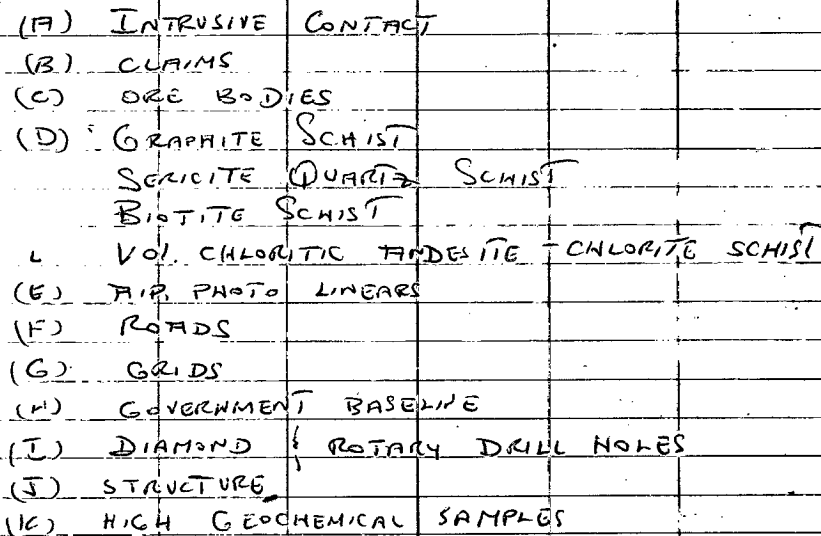 (A) INTRUSIVE CONTACT
(B) CLAIMS
(C) ORE BODIES
(D) GRAPHITE SCHIST
SERICITE QUARTZ SCHIST
BIOTITE SCHIST
VOL. CHLORITIC ANDESITE - CHLORITE SCHIST
(E) AIR PHOTO LINEARS
(F) ROADS
(G) GRIDS
(H) GOVERNMENT BASELINE
(I) DIAMOND & ROTARY DRILL HOLES
(J) STRUCTURE
(K) HIGH GEOCHEMICAL SAMPLES